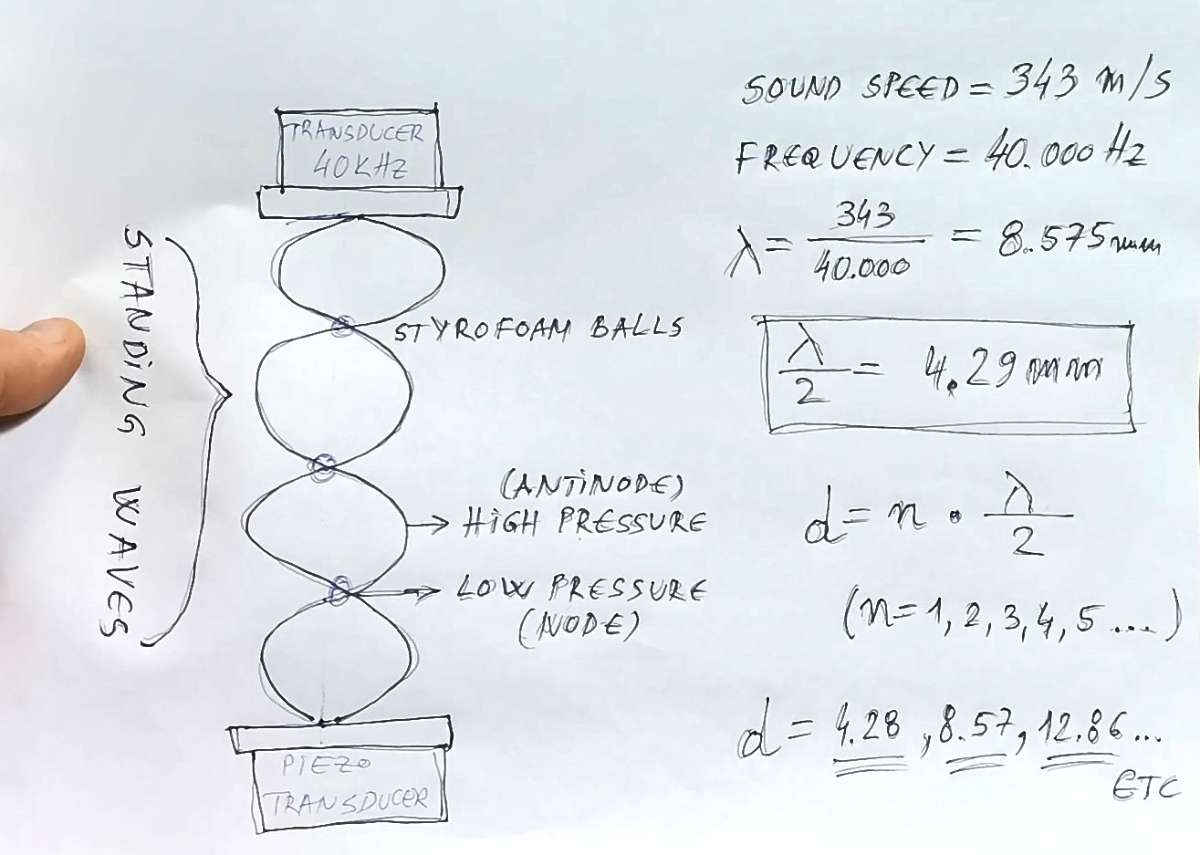 TRANSDUCER
40KHZ
STANDING WAVES
STYROFOAM BALLS
(ANTINODE)
HIGH PRESSURE
LOW PRESSURE
(NODE)
PIEZO
TRANSDUCER
SOUND SPEED = 343 m/s
FREQUENCY = 40.000 Hz
λ = 343 / 40.000 = 8.575 mm
λ / 2 = 4.29 mm
d = n • λ / 2
(n = 1, 2, 3, 4, 5 ....)
d = 4.28, 8.57, 12.86...
ETC